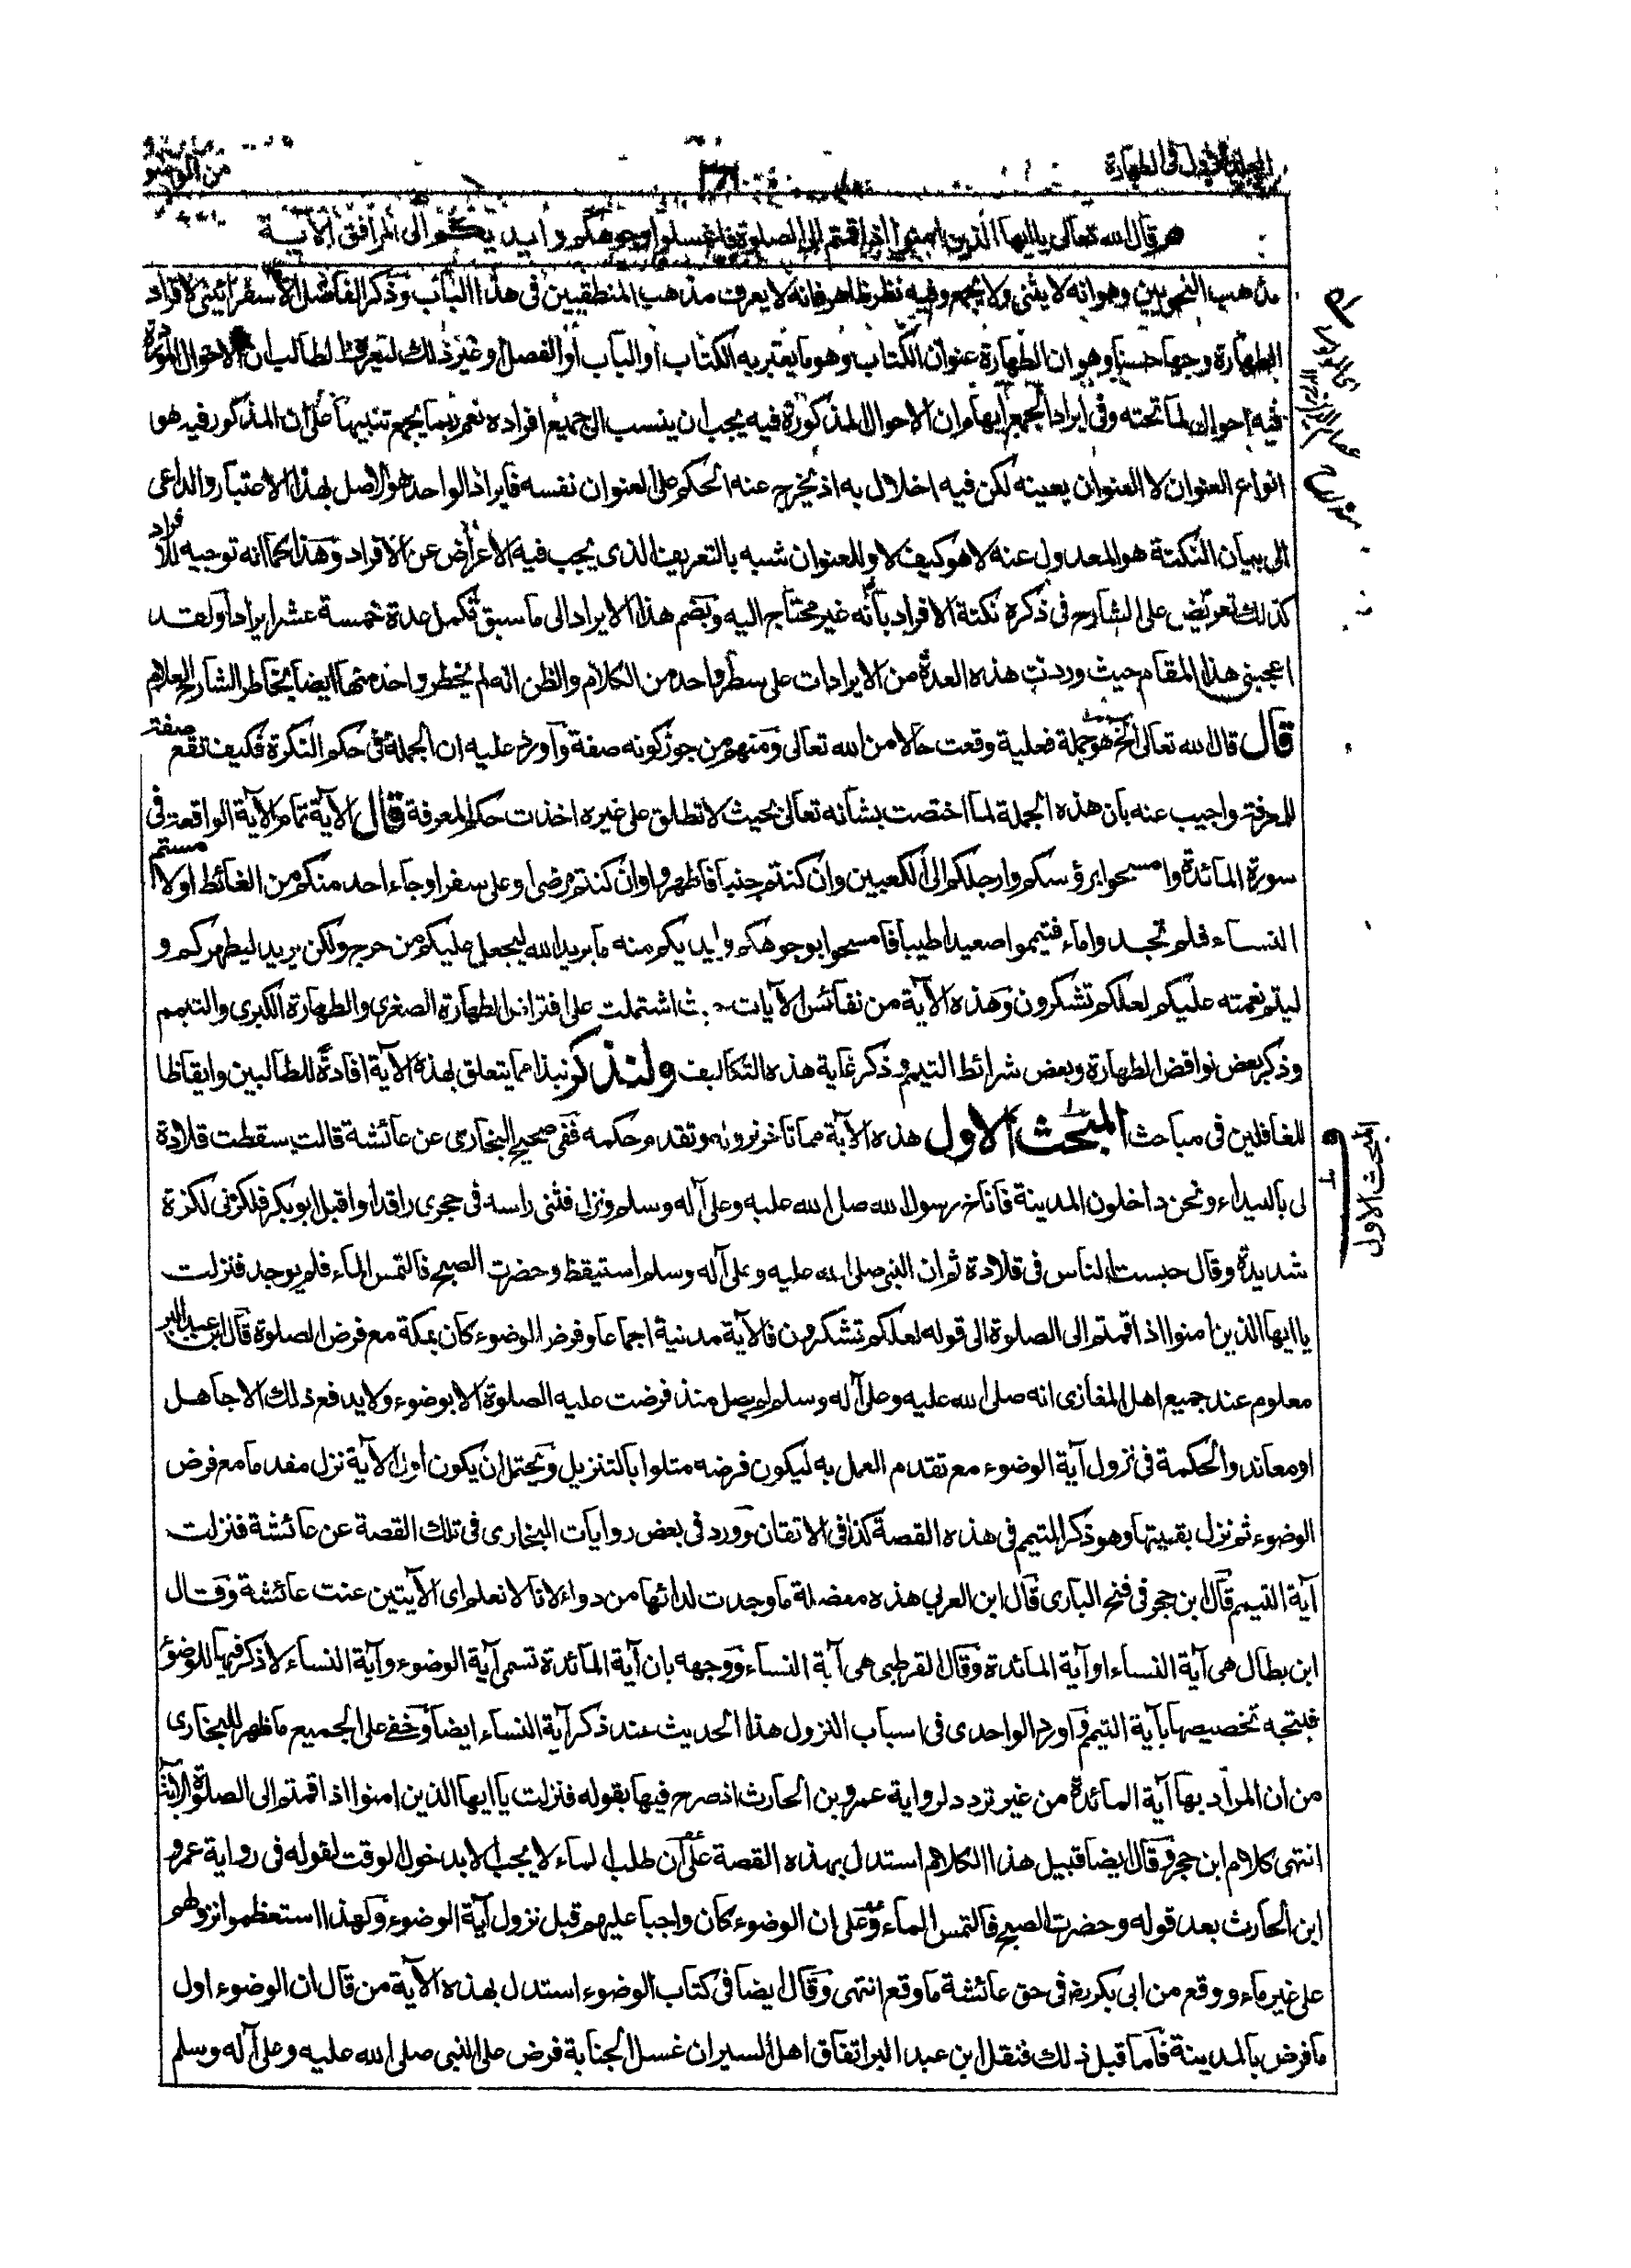 المجلد الاول فى الطهارة
من الوضو
هر قال الله تعالى يا ايها الذين امنوا اذا قمتم الى الصلوة فاغسلوا وجوهكم وايديكم الى المرافق الآية
مذهب النحويين وهو انه لا يثنى ولا يجمع وفيه نظر ظاهر فانه لا يعرف مذهب المنطقيين فى هذا الباب وذكر الفاضل الاسفرائينى لافراد
الطهارة وجها حسنا وهو ان الطهارة عنوان الكتاب وهو ما يعتبر به الكتاب او الباب او الفصل او غير ذلك لتعرف الطالب ان الاحوال الموردة
فيه احوال لما تحته وفى ايراد الجمع ايهام ان الاحوال المذكورة فيه يجب ان ينسب الى جميع افراده نعم ربما يجمع تنبيها على ان المذكور فيه هو
انواع العنوان لا العنوان بعينه لكن فيه اخلال به اذ يخرج عنه الحكم على العنوان نفسه فايراد الواحد هو الاصل بهذا الاعتبار والداعى
الى بيان النكتة هو المعدول عنه لا هو كيف لا وللعنوان شبه بالتعريف الذى يجب فيه الاعراض عن الافراد وهذا كما انه توجيه للافراد
كذلك تعريض على الشارح فى ذكره نكتة الافراد بانه غير محتاج اليه وبضم هذا الايراد الى ما سبق فكمل عدة خمسة عشر ايرادا ولقد
اعجبنى هذا المقام حيث وردت هذه العدة من الايرادات على سطر واحد من الكلام والظن انه لم يخطر واحد منها ايضا بخاطر الشارح العلام
قال قال الله تعالى الخ هو جملة فعلية وقعت حالا من الله تعالى ومنهم من جوز كونه صفة واورد عليه ان الجملة فى حكم النكرة فكيف تقع صفة
للمعرفة واجيب عنه بان هذه الجملة لما اختصت بشانه تعالى بحيث لا تطلق على غيره اخذت حكم المعرفة قال الآية تمام الآية الواقعة فى
سورة المائدة وامسحوا برؤسكم وارجلكم الى الكعبين وان كنتم جنبا فاطهروا وان كنتم مرضى او على سفر او جاء احد منكم من الغائط او لامستم
النساء فلم تجدوا ماء فتيمموا صعيدا طيبا فامسحوا بوجوهكم وايديكم منه ما يريد الله ليجعل عليكم من حرج ولكن يريد ليطهركم و
ليتم نعمته عليكم لعلكم تشكرون وهذه الآية من نفائس الآيات حيث اشتملت على افتراض الطهارة الصغرى والطهارة الكبرى والتيمم
وذكر بعض نواقض الطهارة وبعض شرائط التيمم وذكر غاية هذه التكاليف ولنذكر نبذا مما يتعلق بهذه الآية افادة للطالبين وايقاظا
للغافلين فى مباحث المبحث الاول هذه الآية مما تأخر نزوله وتقدم حكمه ففى صحيح البخارى عن عائشة قالت سقطت قلادة
لى بالبيداء ونحن داخلون المدينة فاناخ رسول الله صلى الله عليه وعلى آله وسلم ونزل فثنى راسه فى حجرى راقدا واقبل ابو بكر فلكزنى لكزة
شديدة وقال حبست الناس فى قلادة ثم ان النبى صلى الله عليه وعلى آله وسلم استيقظ وحضرت الصبح فالتمس الماء فلم يوجد فنزلت
يا ايها الذين امنوا اذا قمتم الى الصلوة الى قوله لعلكم تشكرون فالآية مدنية اجماعا وفرض الوضوء كان بمكة مع فرض الصلوة قال ابن عبد البر
معلوم عند جميع اهل المغازى انه صلى الله عليه وعلى آله وسلم لم يصل منذ فرضت عليه الصلوة الا بوضوء ولا يدفع ذلك الا جاهل
او معاند والحكمة فى نزول آية الوضوء مع تقدم العمل به ليكون فرضه متلوا بالتنزيل ويحتمل ان يكون اول الآية نزل مقدما مع فرض
الوضوء ثم نزل بقيتها وهو ذكر التيمم فى هذه القصة كذا فى الاتقان وورد فى بعض روايات البخارى فى تلك القصة عن عائشة فنزلت
آية التيمم قال ابن حجر فى فتح البارى قال ابن العربى هذه معضلة ما وجدت لدائها من دواء لانا لا نعلم اى الآيتين عنت عائشة وقال
ابن بطال هى آية النساء او آية المائدة وقال القرطبى هى آية النساء ووجهه بان آية المائدة تسمى آية الوضوء وآية النساء لا ذكر فيها للوضوء
فيتجه تخصيصها بآية التيمم واورد الواحدى فى اسباب النزول هذا الحديث عند ذكر آية النساء ايضا وخفى على الجميع ما ظهر للبخارى
من ان المراد بها آية المائدة من غير تردد لرواية عمرو بن الحارث اذ صرح فيها بقوله فنزلت يا ايها الذين امنوا اذا قمتم الى الصلوة الآية
انتهى كلام ابن حجر وقال ايضا قبيل هذا الكلام استدل بهذه القصة على ان طلب الماء لا يجب الا بدخول الوقت لقوله فى رواية عمرو
ابن الحارث بعد قوله وحضرت الصبح فالتمس الماء وعلى ان الوضوء كان واجبا عليهم قبل نزول آية الوضوء ولهذا استعظموا نزولهم
على غير ماء ووقع من ابى بكر فى حق عائشة ما وقع انتهى وقال ايضا فى كتاب الوضوء استدل بهذه الآية من قال ان الوضوء اول
ما فرض بالمدينة فاما قبل ذلك فنقل ابن عبد البر اتفاق اهل السير ان غسل الجنابة فرض على النبى صلى الله عليه وعلى آله وسلم
المبحث الاول